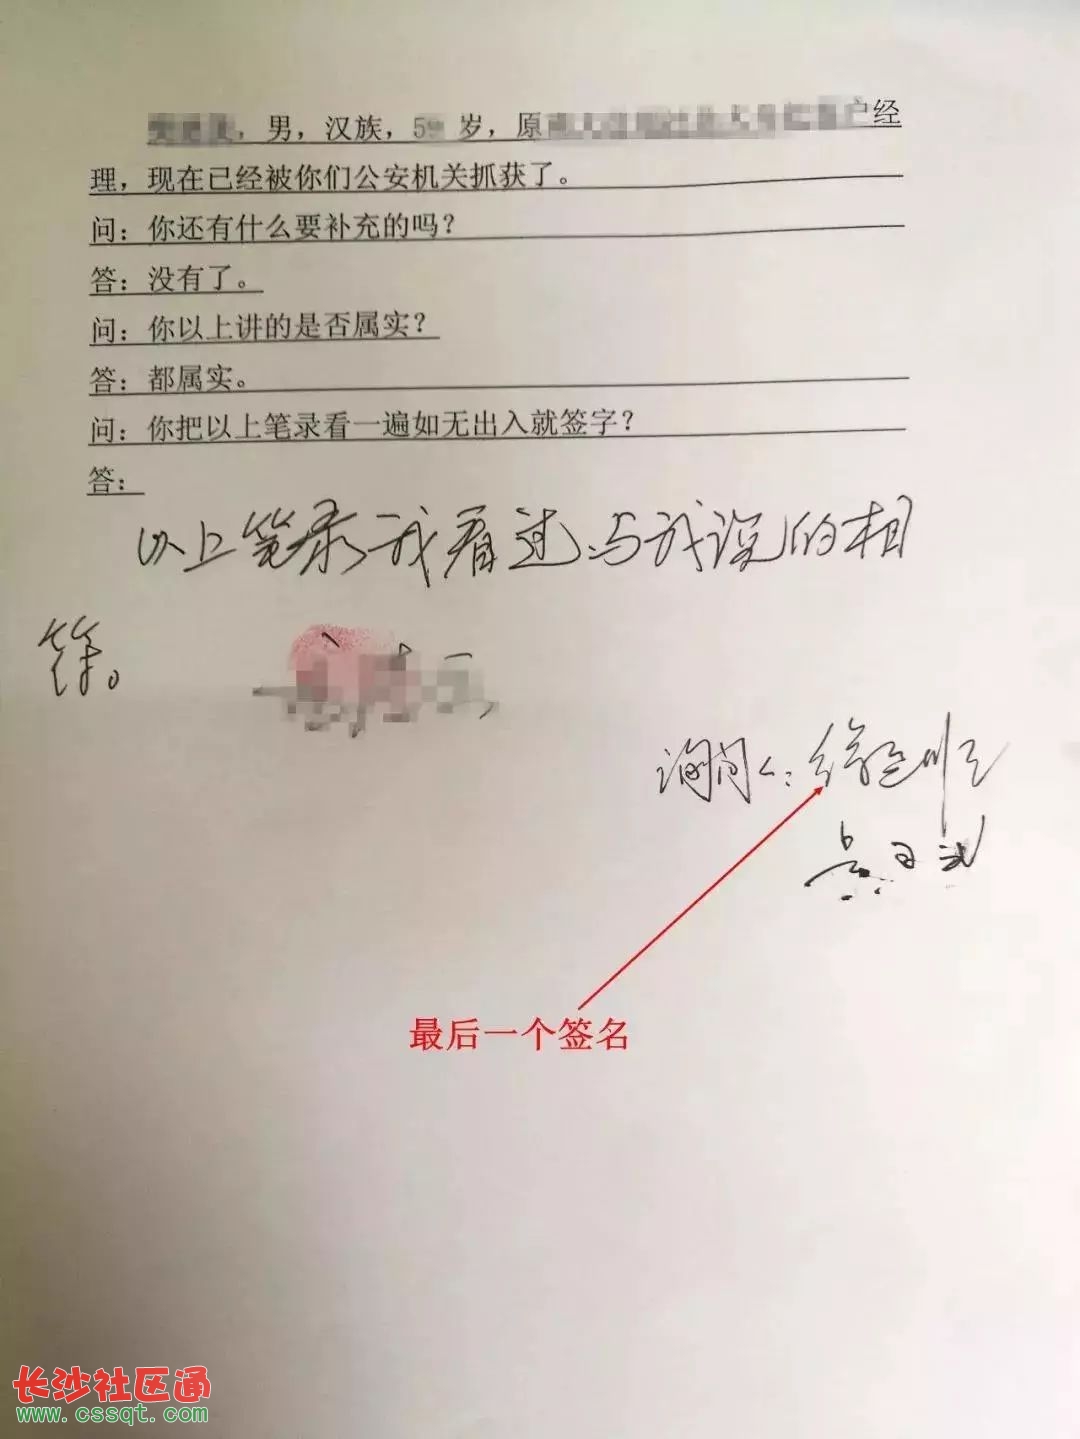 ，男，汉族，5 岁，原 户经
理，现在已经被你们公安机关抓获了。
问：你还有什么要补充的吗？
答：没有了。
问：你以上讲的是否属实？
答：都属实。
问：你把以上笔录看一遍如无出入就签字？
答：
以上笔录我看过.与我说的相
符。
询问人：
最后一个签名
长沙社区通
www.cssqt.com